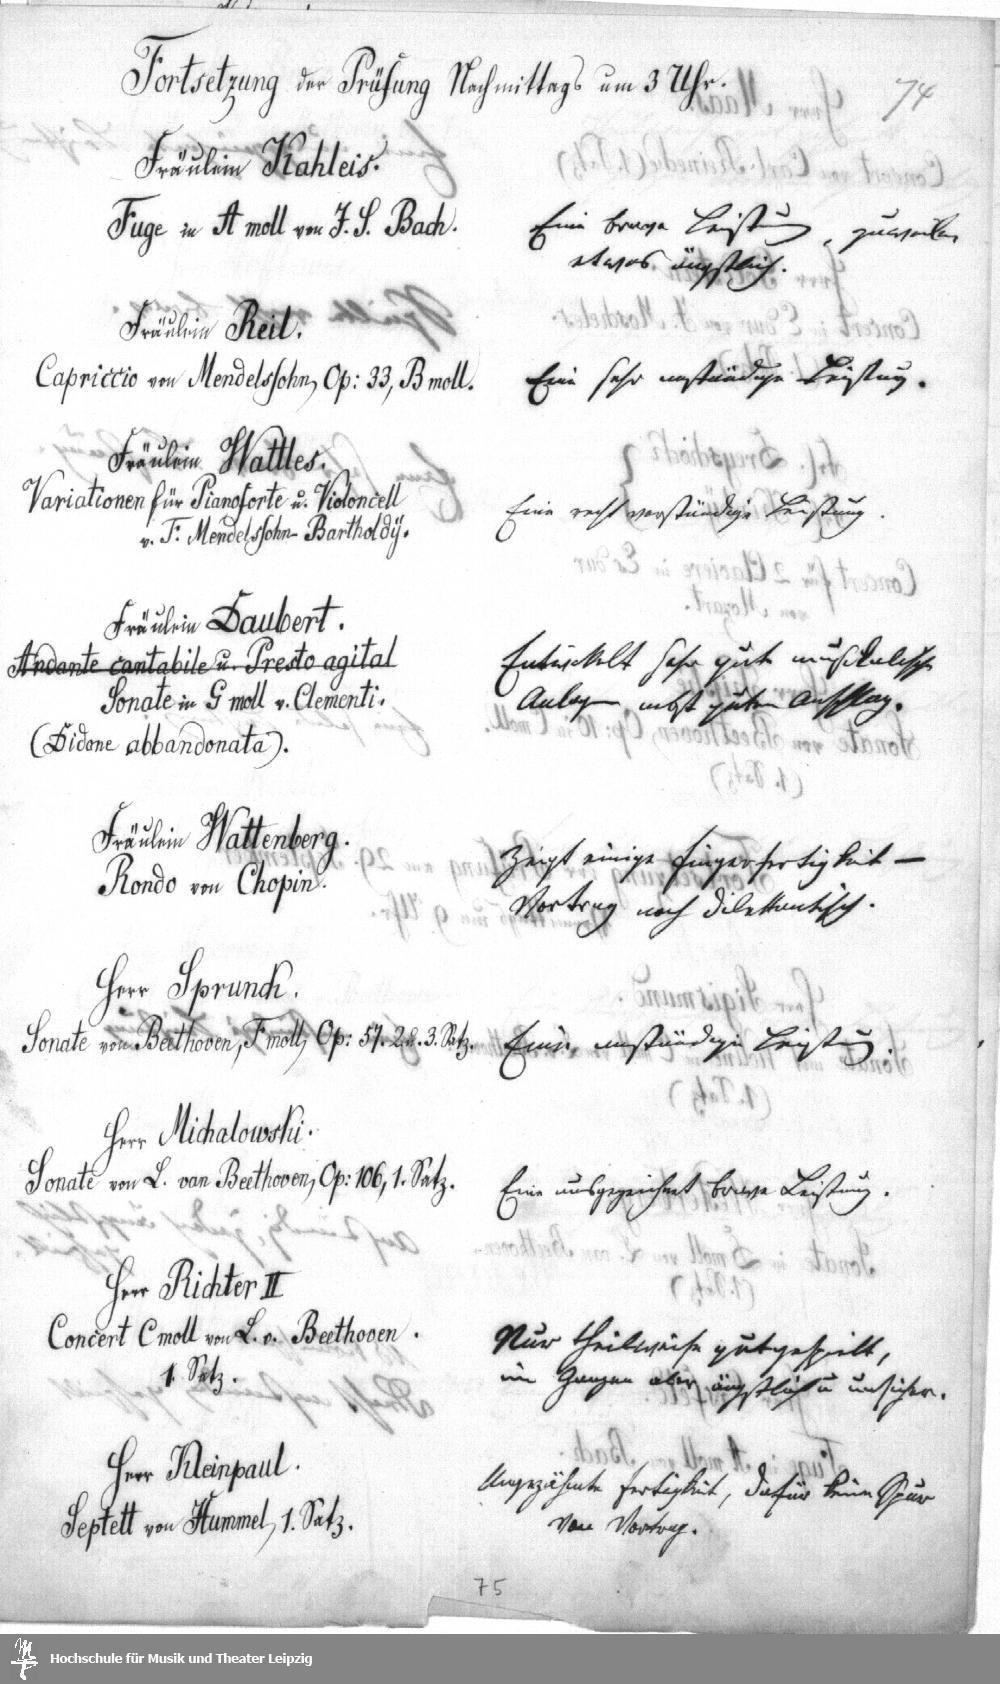 Fortsetzung der Prüfung Nachmittags um 3 Uhr.
74
Fräulein Kahleis.
Fuge in A moll von J. S. Bach.
Eine brave Leistung, zuweilen
etwas ängstlich.
Fräulein Reil.
Capriccio von Mendelssohn, Op: 33, B moll.
Eine sehr anständige Leistung.
Fräulein Wattles.
Variationen für Pianoforte u. Violoncell
v. F. Mendelssohn-Bartholdÿ.
Eine recht verständige Leistung.
Fräulein Daubert.
Andante cantabile u. Presto agital
Sonate in G moll v. Clementi.
(Didone abbandonata).
Entwickelt sehr gute musikalische
Anlagen nebst gutem Anschlag.
Fräulein Wattenberg.
Rondo von Chopin.
Zeigt einige Fingerfertigkeit —
Vortrag noch dilettantisch.
Herr Sprunck.
Sonate von Beethoven, F moll, Op: 57. 2. u. 3. Satz.
Eine anständige Leistung.
Herr Michalowski.
Sonate von L. van Beethoven, Op: 106, 1. Satz.
Eine ausgezeichnet brave Leistung.
Herr Richter II
Concert C moll von L. v. Beethoven.
1. Satz.
Nur theilweise gut gespielt,
im Ganzen aber ängstlich u unsicher.
Herr Kleinpaul.
Septett von Hummel, 1. Satz.
Ungezähmte Fertigkeit, dafür keine Spur
von Vortrag.
75
Hochschule für Musik und Theater Leipzig